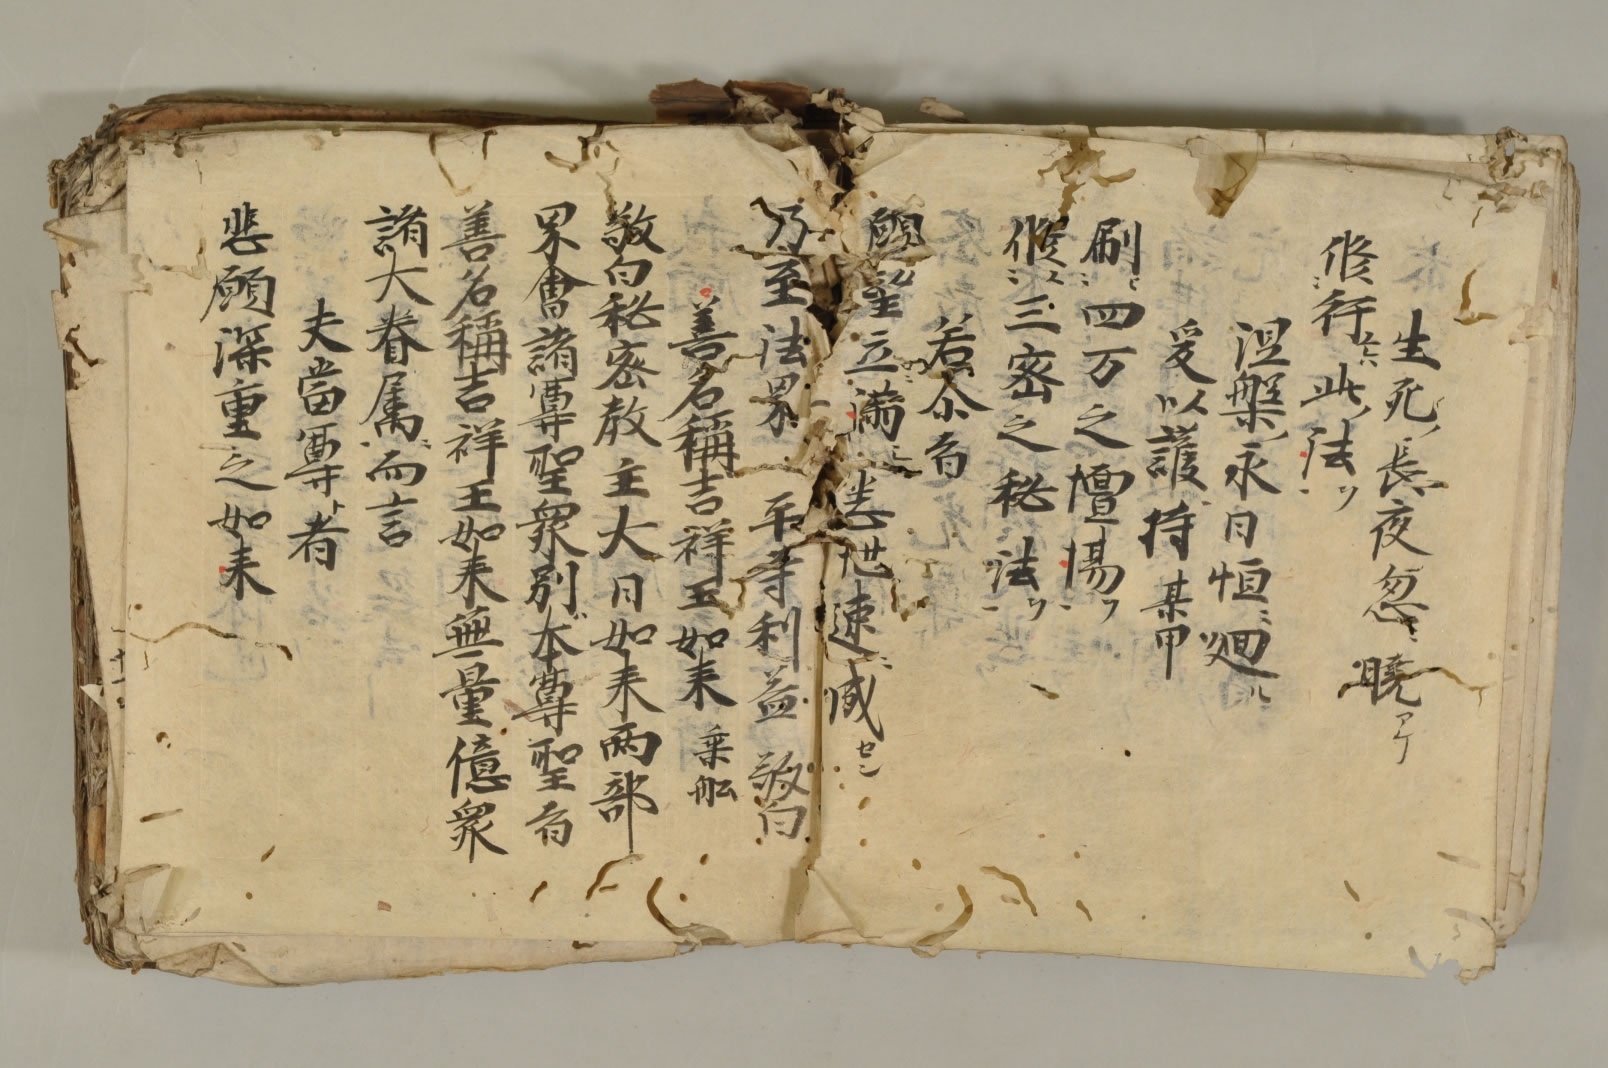 生死ノ長夜忽ニ曉アケ
修行スレハ此ノ法ヲ
涅槃ノ永日恒ニ廻ル
爰以護持某甲
刷ニ四万之壇場ヲ
修ス三密之秘法ヲ
若尒者
願望立満ニ 悉地速ニ成セン
乃至法界 平等利益 敬白
善名稱吉祥王如来 乗舩
敬白秘密教主大日如来両部
界會諸尊聖衆別本尊聖者
善名稱吉祥王如来無量億衆
諸大眷属ニ而言
夫當尊ト者
悲願深重之如来